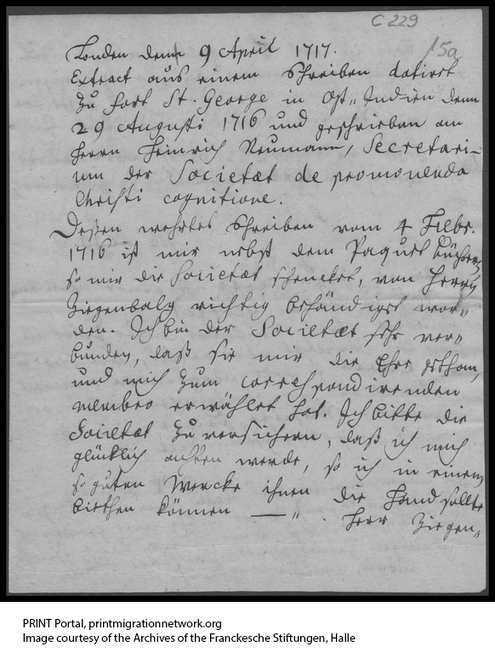 C 229
15a
London denn 9 April 1717.
Extract aus einem Schreiben datiert
Zu Fort St. George in Ost-Indien denn
29 Augusti 1716 und geschrieben an
Herrn Heinrich Neumann, Secretari-
um der Societæt de promovenda
Christi cognitione.
Dessen wehrtes Schreiben vom 4 Febr.
1716 ist mir nebst dem Paquet Bücher,
so mir die Societæt schencket, von Herrn
Ziegenbalg richtig behändiget wor-
den. Ich bin der Societæt sehr ver-
bunden, daß sie mir die Ehre gethan,
und mich zum correspondirenden
membro erwählet hat. Ich bitte die
Societæt zu versichern, daß ich mich
glücklich achten werde, so ich in einem
so guten Wercke ihnen die Hand sollte
biethen können — ". Herr Ziegen-
PRINT Portal, printmigrationnetwork.org
Image courtesy of the Archives of the Franckesche Stiftungen, Halle